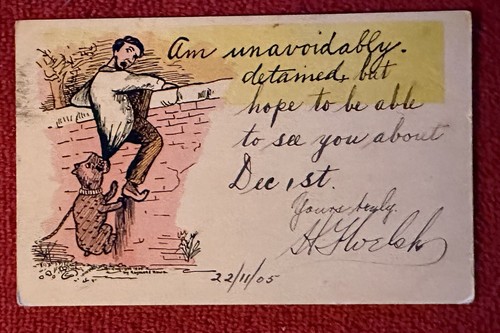 Am unavoidably.
detained, but
hope to be able
to see you about
Dec 1st.
Yours truly.
H Welsh
22/11/05